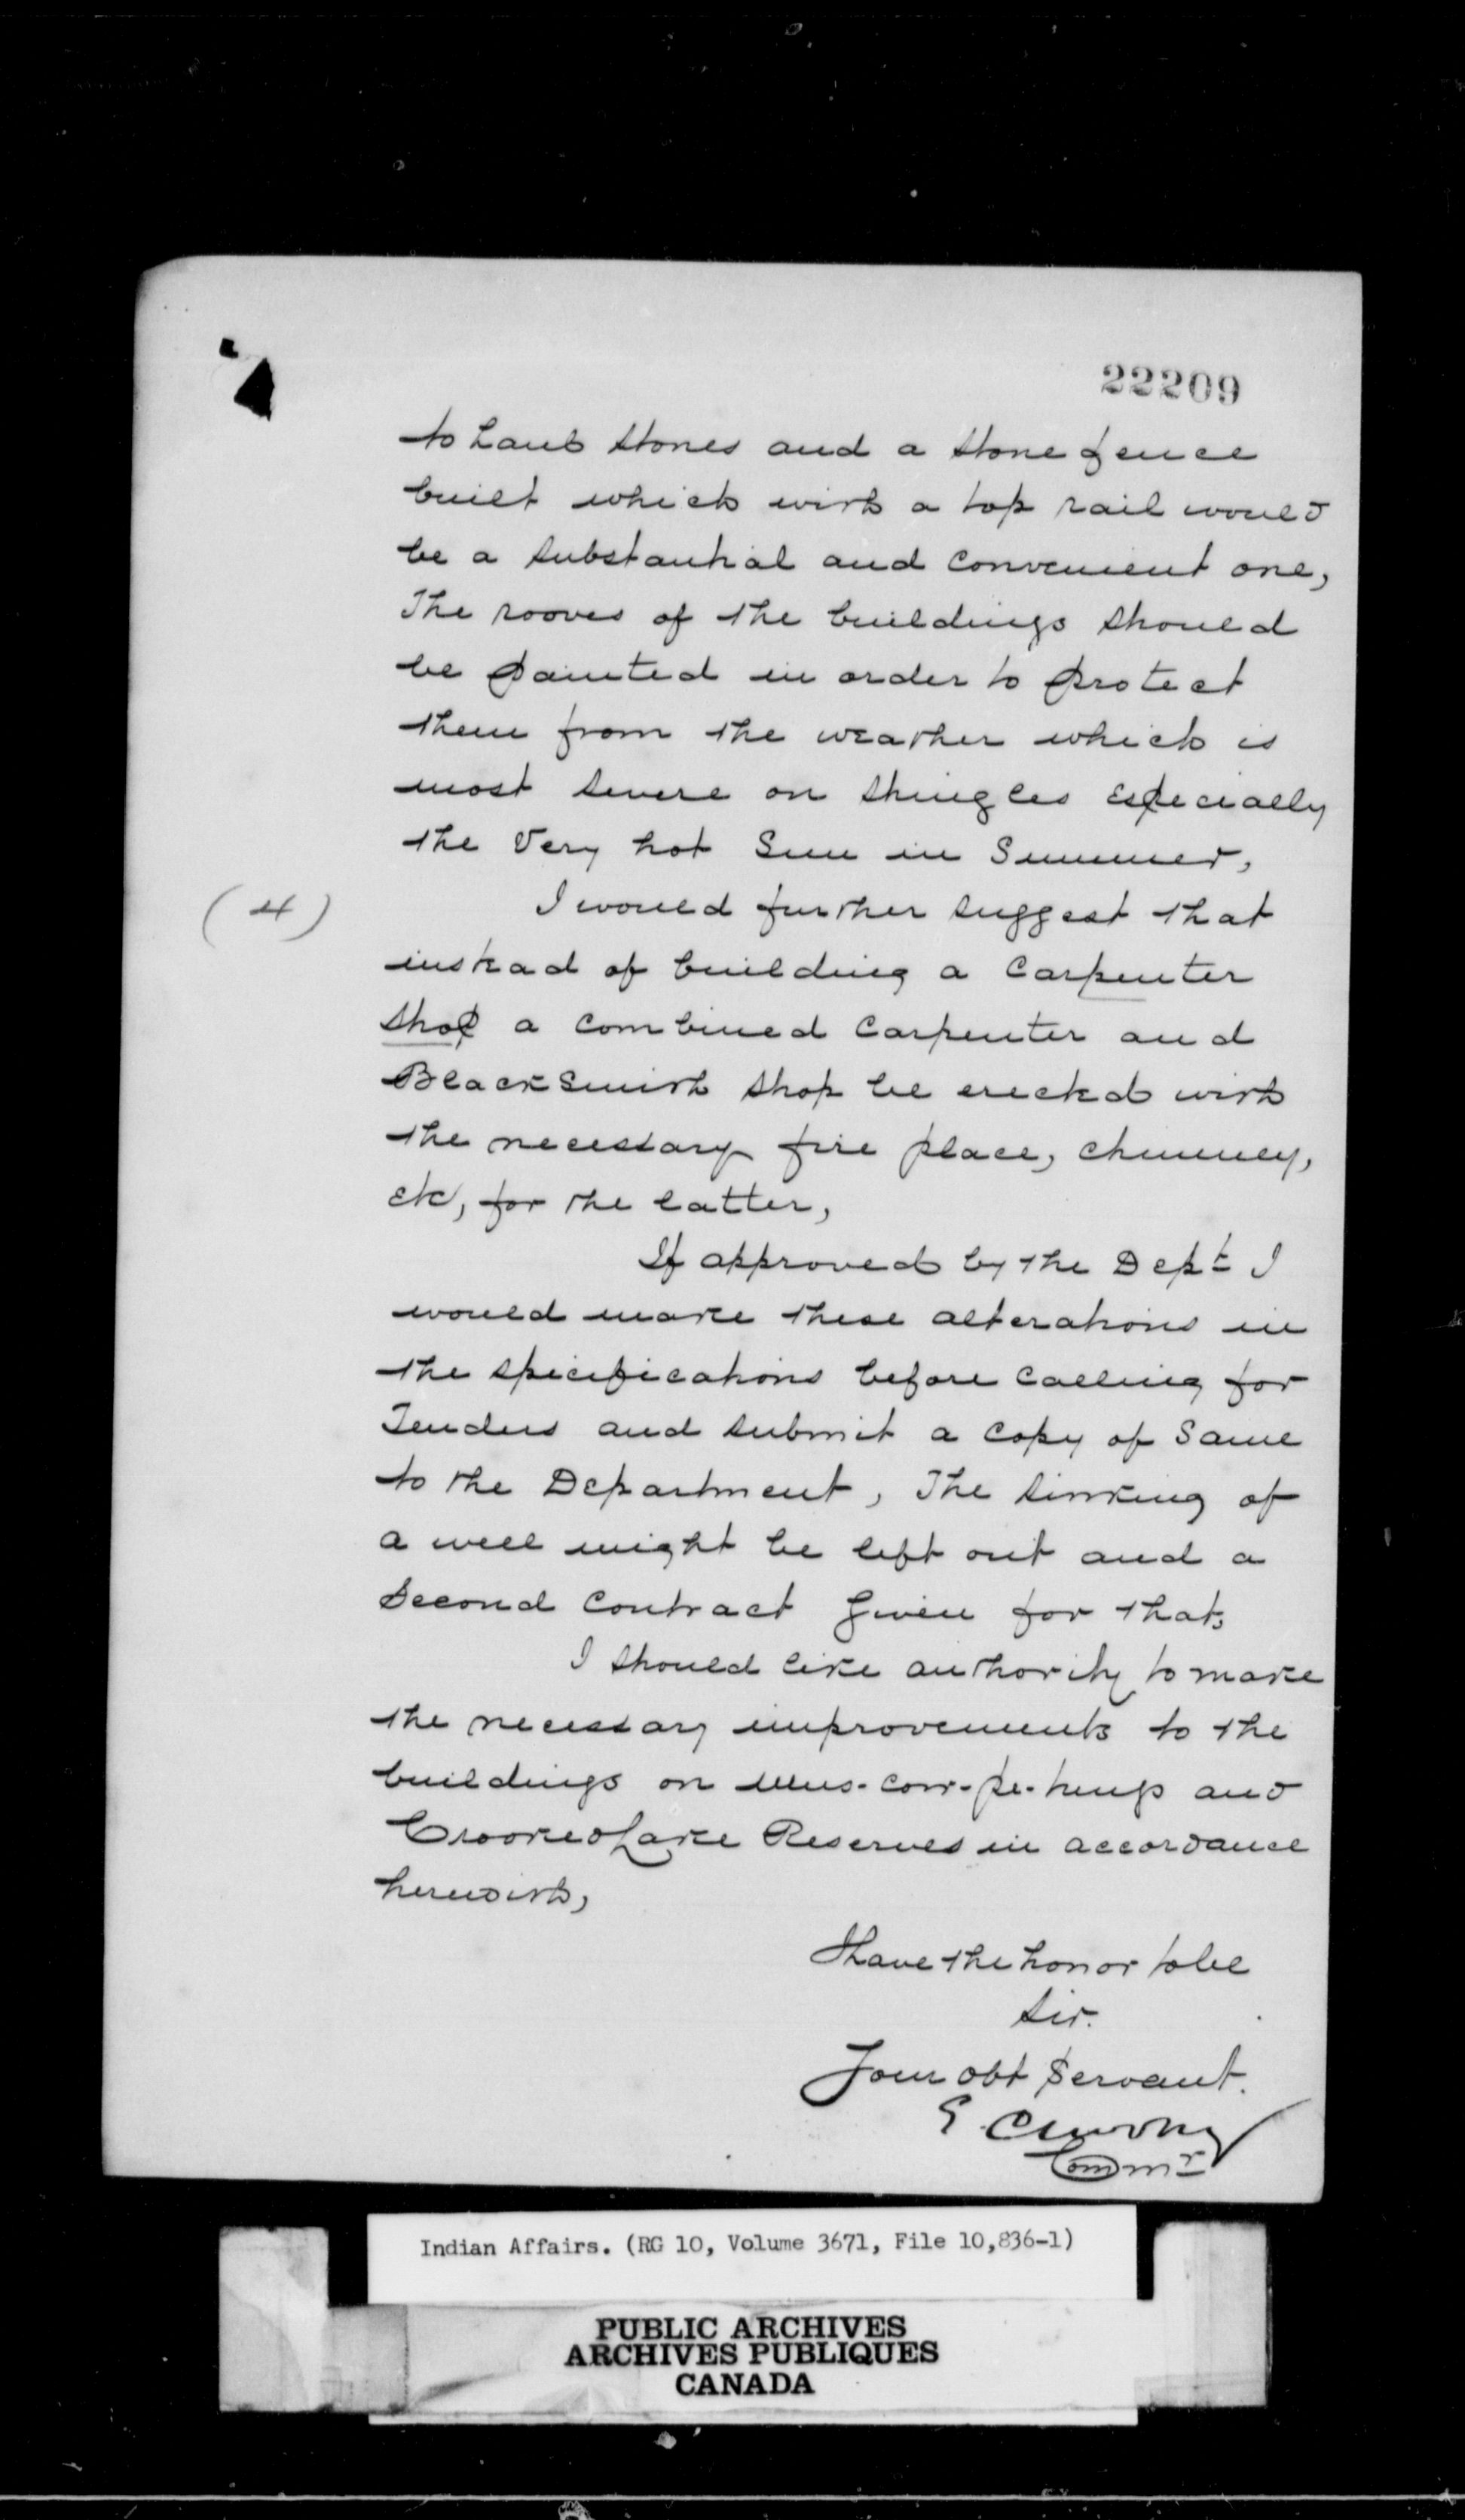 22209
to haul stones and a stone fence
built which with a top rail would
be a substantial and convenient one,
The rooves of the buildings should
be painted in order to protect
them from the weather which is
most severe on shingles especially
the Very hot Sun in Summer,
(4)
I would further suggest that
instead of building a Carpenter
shop a combined Carpenter and
Blacksmith shop be erected with
the necessary fire place, chimney,
etc, for the latter,
If approved by the Dept I
would make these alterations in
the specifications before calling for
Tenders and submit a copy of Same
to the Department, The sinking of
a well might be left out and a
second contract given for that,
I should like authority to make
the necessary improvements to the
buildings on Mus-cow-pe-tungs and
Crooked Lake Reserves in accordance
herewith,
I have the honor to be
Sir.
Your obt Servant.
E.
Commr
Indian Affairs. (RG 10, Volume 3671, File 10,836-1)
PUBLIC ARCHIVES
ARCHIVES PUBLIQUES
CANADA